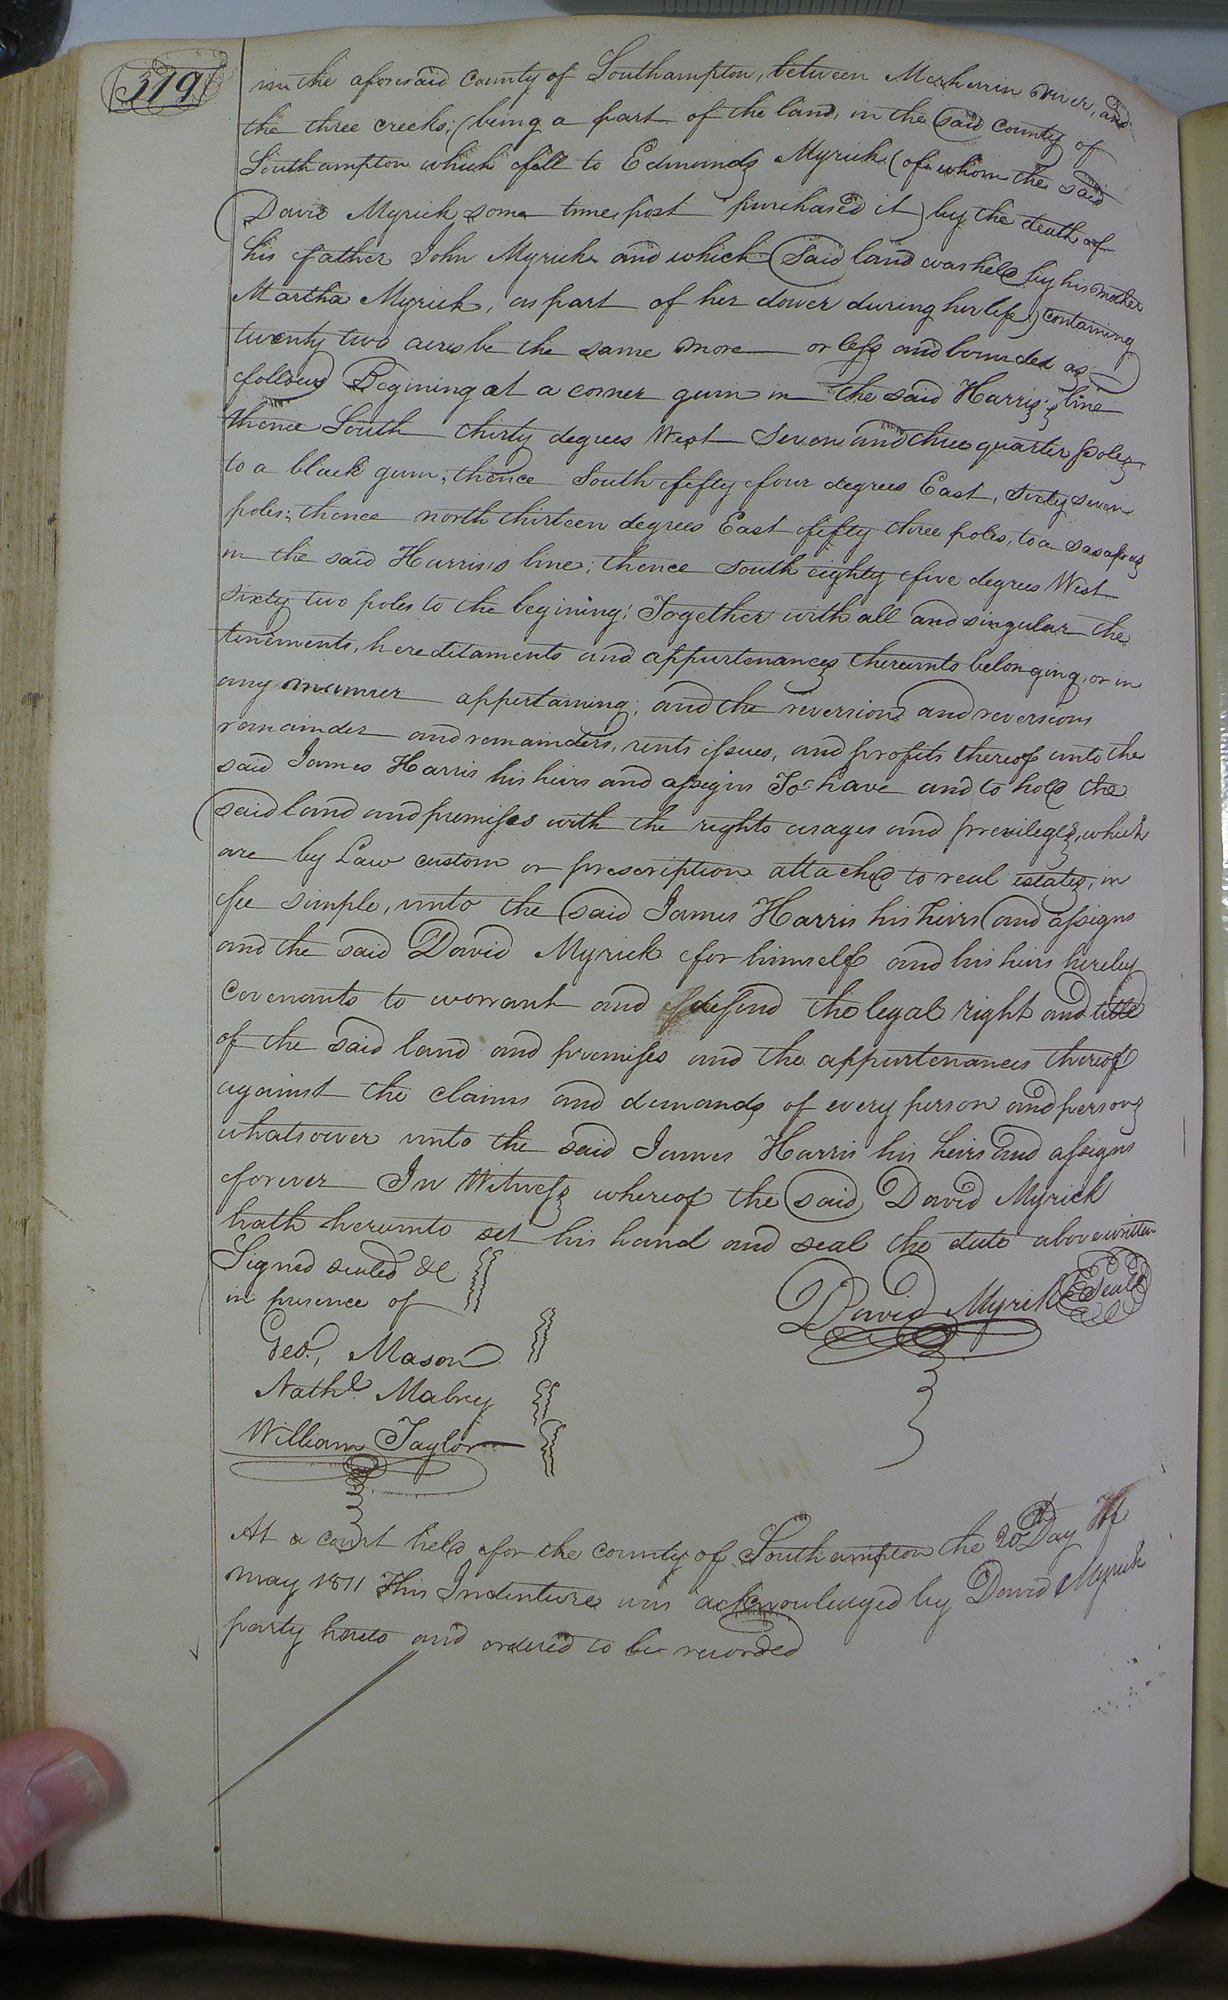 319
in the aforesaid County of Southampton, between Meherrin river, and
the three creeks; (being a part of the land, in the said County of
Southampton which fell to Edmunds Myrick (of whom the said
David Myrick some time post purchased it) by the death of
his father John Myrick and which said land was held by his mother
Martha Myrick, as part of her dower during her life) containing
twenty two acres be the same more or less and bounded as
follows Begining at a corner gum in the said Harris's line
thence South thirty degrees West Seven and three quarter poles
to a black gum; thence South fifty four degrees East, sixty seven
poles; thence north thirteen degrees East fifty three poles, to a sasafras
in the said Harris's line; thence south eighty five degrees West
sixty two poles to the begining; Together with all and singular the
tenements, hereditaments and appurtenances thereunto belonging, or in
any manner appertaining; and the reversion and reversions
remainder and remainders, rents issues, and profits thereof unto the
said James Harris his heirs and assigns To have and to hold the
said land and premises with the rights usages and privileges, which
are by Law custom or prescription attached to real estates, in
fee simple, unto the said James Harris his heirs and assigns
and the said David Myrick for himself and his heirs hereby
Covenants to warrant and defend the legal right and title
of the said land and premises and the appurtenances thereof
against the claims and demands of every person and persons
whatsoever unto the said James Harris his heirs and assigns
forever In Witness whereof the said David Myrick
hath hereunto set his hand and seal the date above written
Signed sealed &c
in presence of
David Myrick Seal
Geo., Mason
Nathl. Mabry
William Taylor
At a court held for the county of Southampton the 20th Day of
may 1811 This Indenture was acknowledged by David Myrick
party hereto and ordered to be recorded